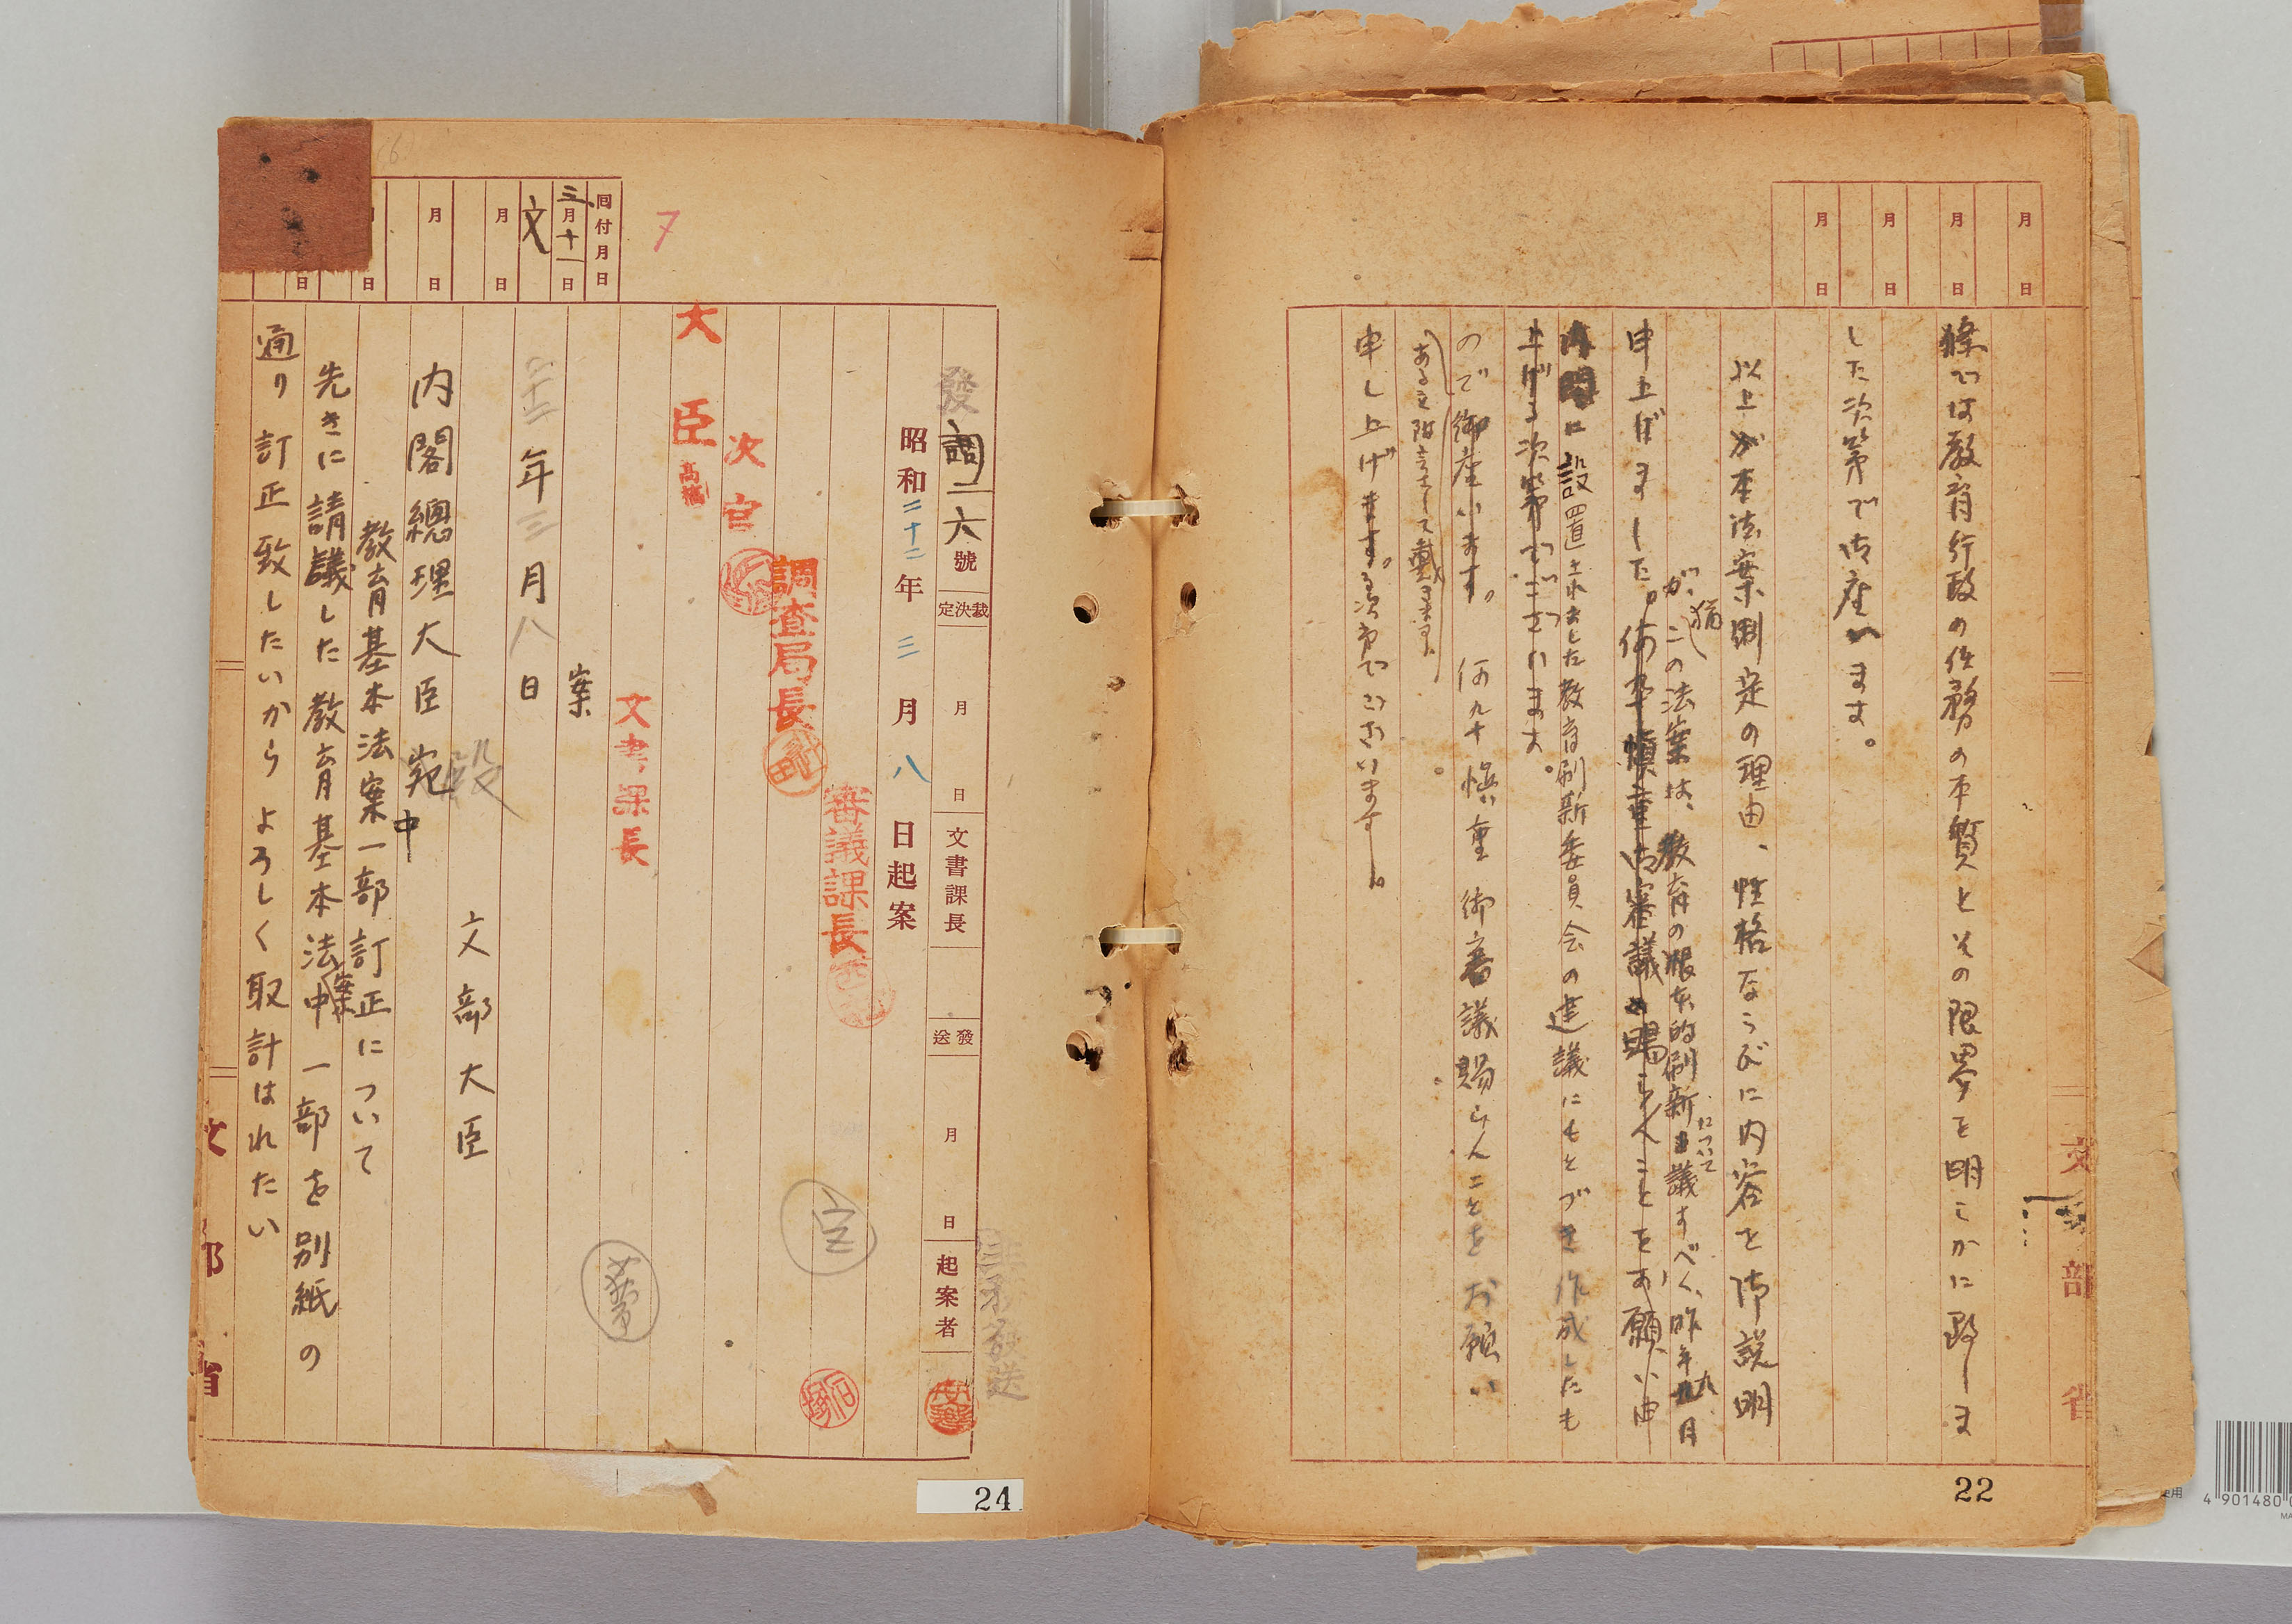 月 日
月 日
月 日
月 日
條では教育行政の任務の本質とその限界を明らかに致しま
した次第で御座います。
以上が本法案制定の理由、性格ならびに内容を御説明
申上げました。何卒慎重御審議を賜らんことをお願い申
が、猶
この法案は、教育の根本的刷新について議すべく、昨年九月
内閣に設置されました教育刷新委員会の建議にもとづき作成したも
上げる次第でございます。
ので御座います。何卆慎重御審議賜らんことをお願い
申し上げます。る次第でございます。
文部省
22
7
回付月日
三月十一日
文
月 日
月 日
月 日
日
發調二六號
裁決定 月 日
文書課長
發送 月 日
起案者
昭和二十二年三月八日起案
審議課長
調査局長
次官
大臣
高橋
文書課長
石塚
案
二十二年三月八日
文部大臣
内閣總理大臣宛
教育基本法案中一部訂正について
先きに請議した教育基本法案中一部を別紙の
通り訂正致したいからよろしく取計はれたい
文部省
24
4 901480